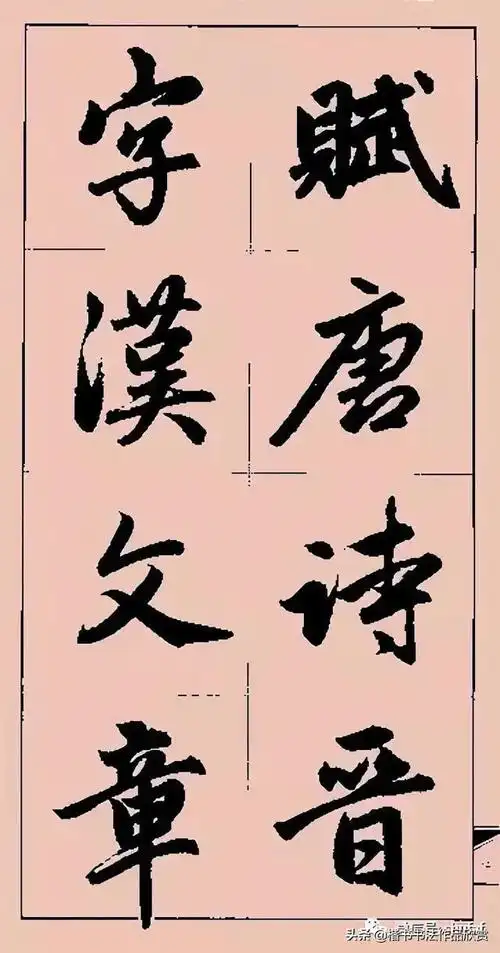 賦唐詩晋
字漢文章
头条@楷书书法作品欣赏